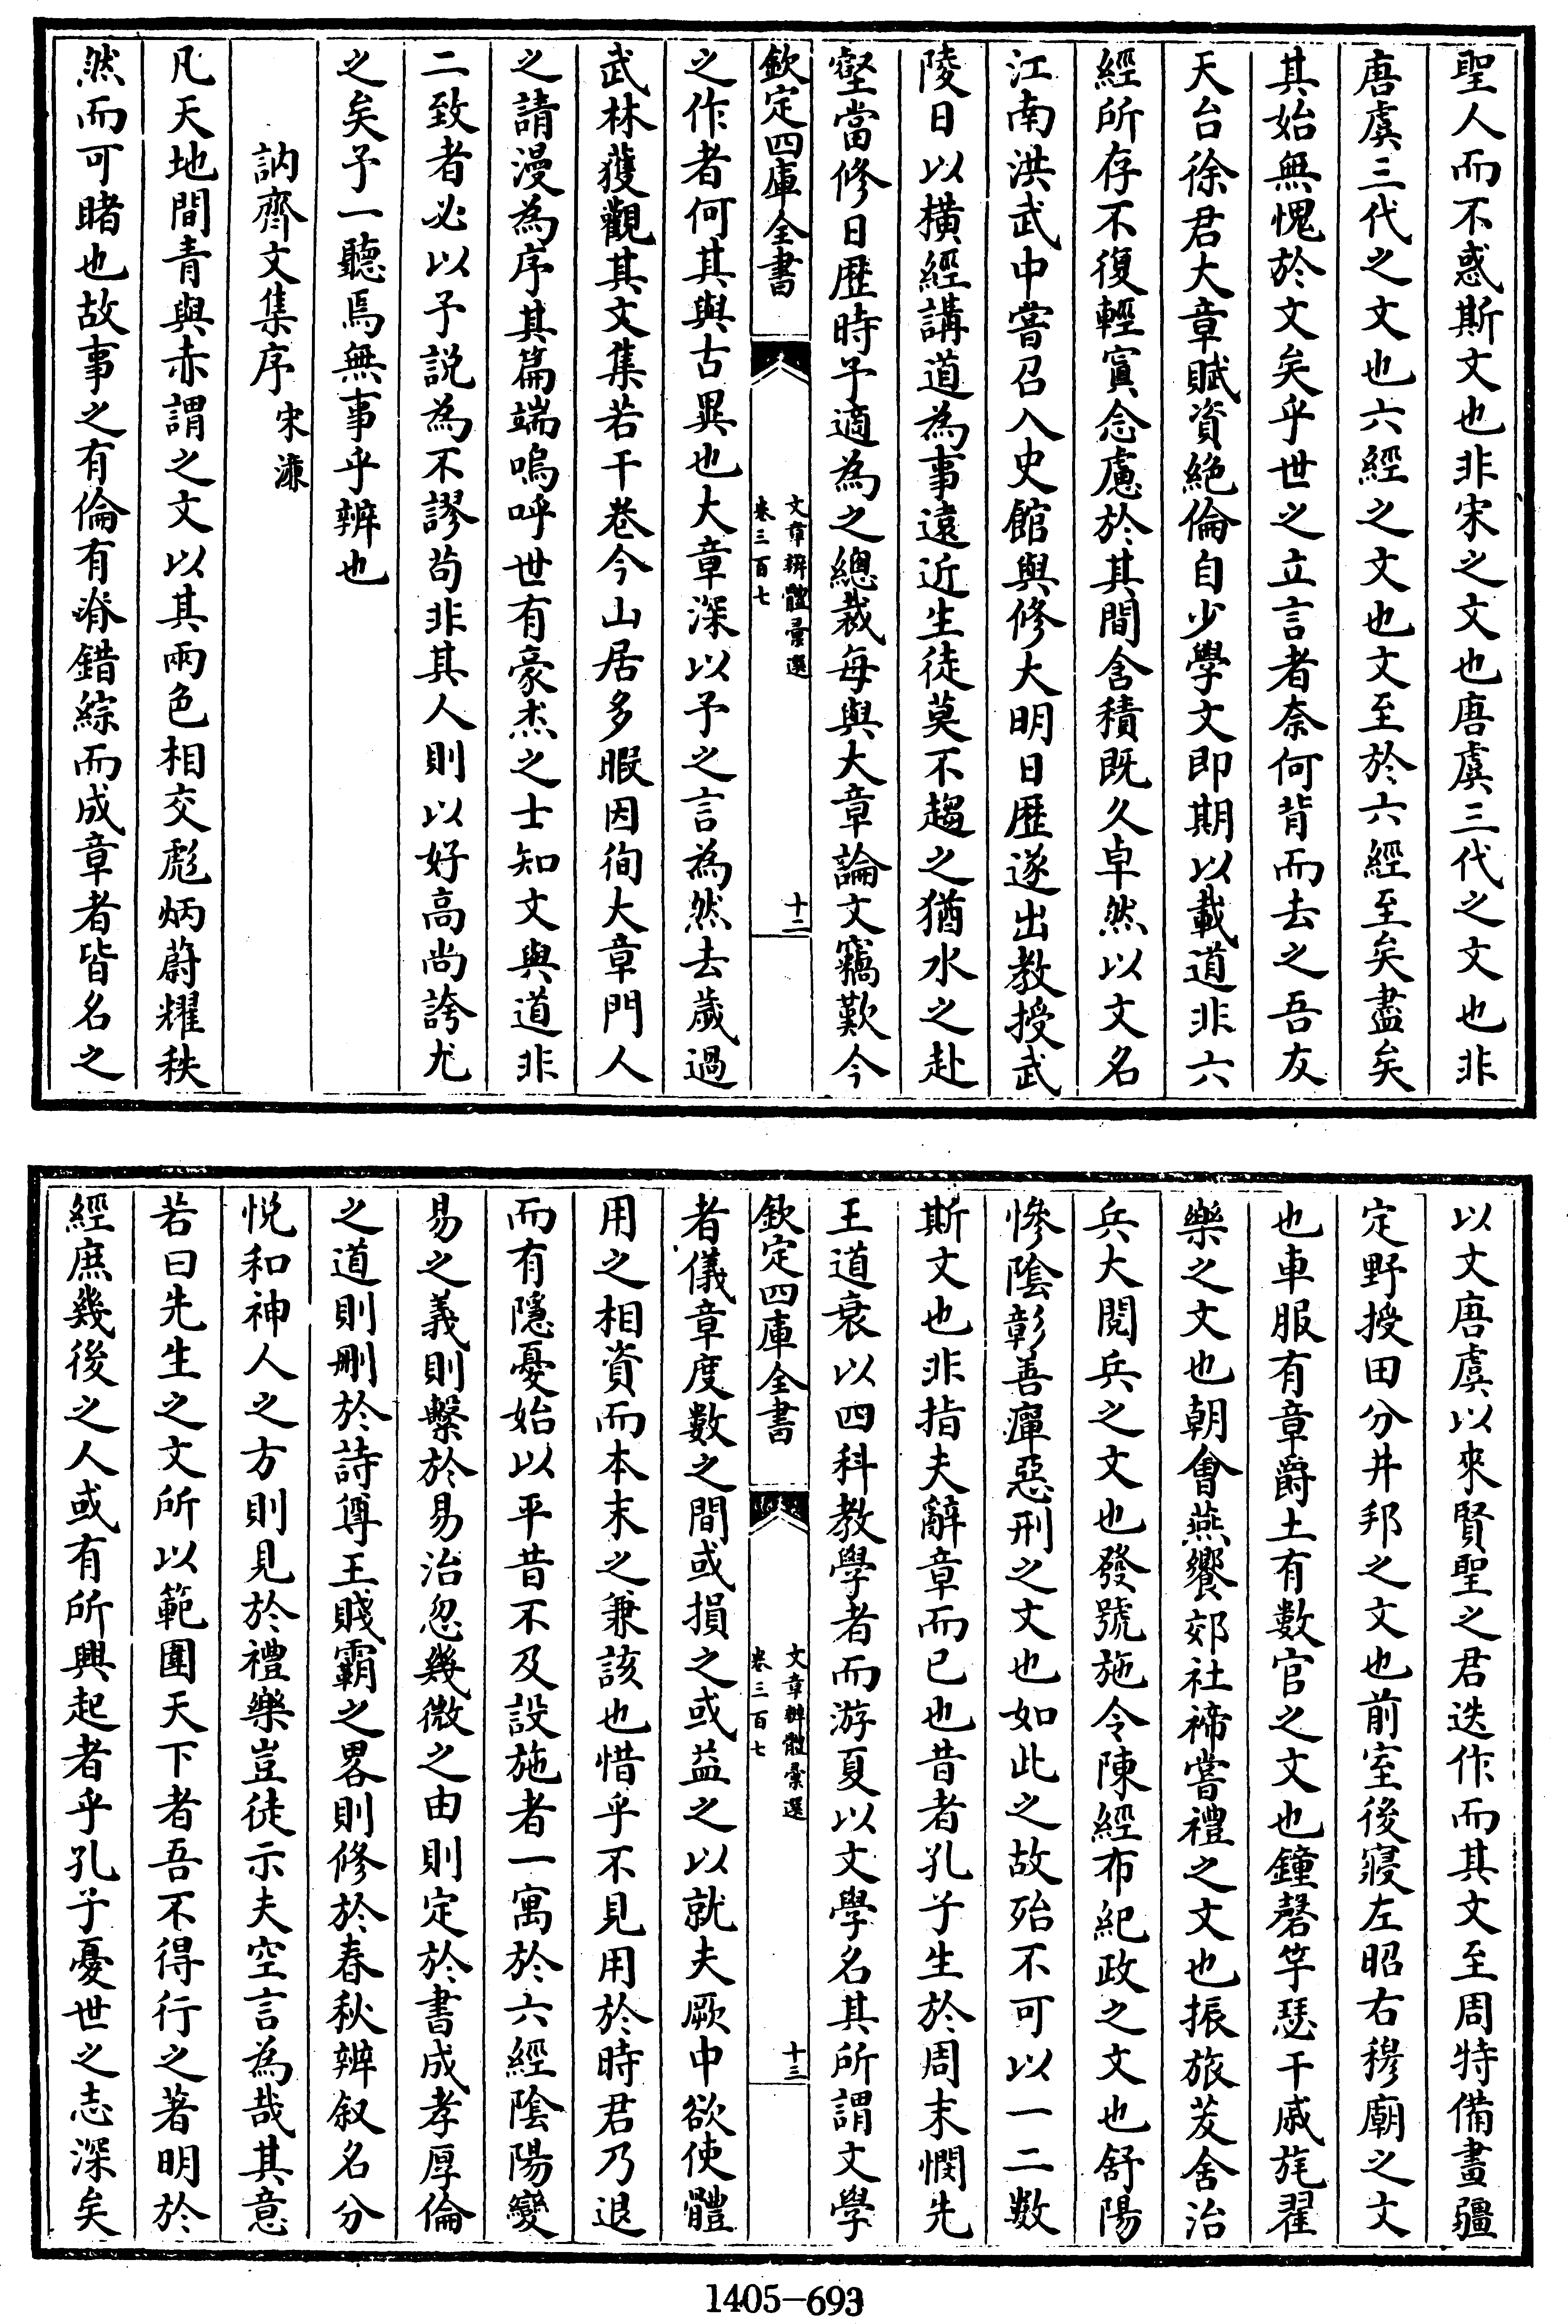 聖人而不惑斯文也非宋之文也唐虞三代之文也非
唐虞三代之文也六經之文也文至於六經至矣盡矣
其始無愧於文矣乎世之立言者奈何背而去之吾友
天台徐君大章賦資絶倫自少學文即期以載道非六
經所存不復輕寘念慮於其間含積既久卓然以文名
江南洪武中嘗召入史館與修大明日歴遂出教授武
陵日以横經講道為事遠近生徒莫不趨之猶水之赴
壑當修日歴時予適為之總裁每與大章論文竊歎今
欽定四庫全書
文章辨體彙選
卷三百七
十二
之作者何其與古異也大章深以予之言為然去歲過
武林獲觀其文集若干卷今山居多暇因徇大章門人
之請漫為序其篇端嗚呼世有豪杰之士知文與道非
二致者必以予説為不謬苟非其人則以好高尚誇尤
之矣予一聽焉無事乎辨也
訥齋文集序 宋濂
凡天地間青與赤謂之文以其兩色相交彪炳蔚耀秩
然而可睹也故事之有倫有脊錯綜而成章者皆名之
以文唐虞以來賢聖之君迭作而其文至周特備畫疆
定野授田分井邦之文也前室後寢左昭右穆廟之文
也車服有章爵土有數官之文也鐘磬竽瑟干戚旄翟
樂之文也朝會燕饗郊社禘嘗禮之文也振旅茇舍治
兵大閱兵之文也發號施令陳經布紀政之文也舒陽
慘陰彰善癉惡刑之文也如此之故殆不可以一二數
斯文也非指夫辭章而已也昔者孔子生於周末憫先
王道衰以四科教學者而游夏以文學名其所謂文學
欽定四庫全書
文章辨體彙選
卷三百七
十三
者儀章度數之間或損之或益之以就夫厥中欲使體
用之相資而本末之兼該也惜乎不見用於時君乃退
而有隱憂始以平昔不及設施者一寓於六經陰陽變
易之義則繫於易治忽幾微之由則定於書成孝厚倫
之道則刪於詩尊王賤霸之畧則修於春秋辨叙名分
悦和神人之方則見於禮樂豈徒示夫空言為哉其意
若曰先生之文所以範圍天下者吾不得行之著明於
經庶幾後之人或有所興起者乎孔子憂世之志深矣
1405-693